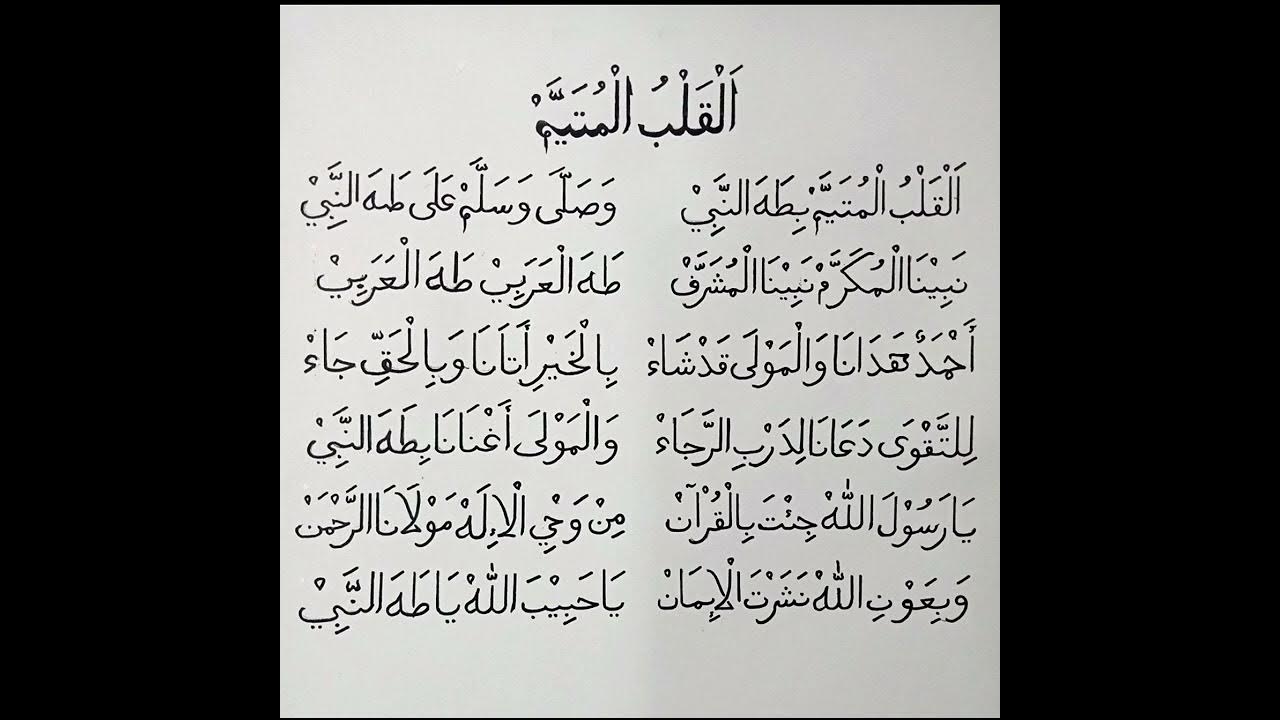 اَلْقَلْبُ الْمُتَيَّمْ
اَلْقَلْبُ الْمُتَيَّمْ بِطَهَ النَّبِيْ وَصَلَّى وَسَلَّمْ عَلَى طَهَ النَّبِيْ
نَبِيْنَا الْمُكَرَّمْ نَبِيْنَا الْمُشَرَّفْ طَهَ الْعَرَبِيْ طَهَ الْعَرَبِيْ
أَحْمَدٌ هَدَانَا وَالْمَوْلَى قَدْ شَاءْ بِالْخَيْرِ أَتَانَا وَبِالْحَقِّ جَاءْ
لِلتَّقْوَى دَعَانَا لِدَرْبِ الرَّجَاءْ وَالْمَوْلَى أَغْنَانَا بِطَهَ النَّبِيْ
يَا رَسُوْلَ اللّٰهْ جِئْتَ بِالْقُرْآنْ مِنْ وَحْيِ الْاِلَهْ مَوْلَانَا الرَّحْمَنْ
وَبِعَوْنِ اللّٰهْ نَشَرْتَ الْاِيمَانْ يَا حَبِيْبَ اللّٰهْ يَا طَهَ النَّبِيْ